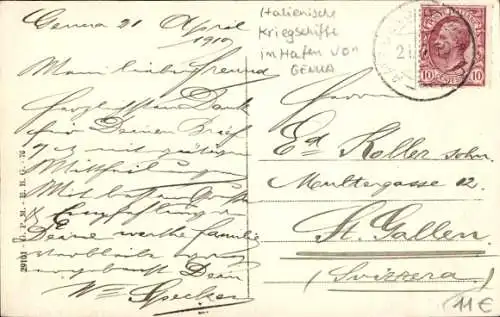 Genua 21 April
1910
Mein lieber Freund
Herzlichsten Dank
für Deinen Brief
mit gütigen
Mittheilung
Mit besten Grüßen
& Empfehlungen
Deine werthe Familie
verbleibe
Dein
Wm Specker
Italienische
Kriegschiffe
im Hafen von
GENUA
10
10
Herrn
Ed. Koller sohn
Moultergasse 12.
St. Gallen
(Svizzera)
11€